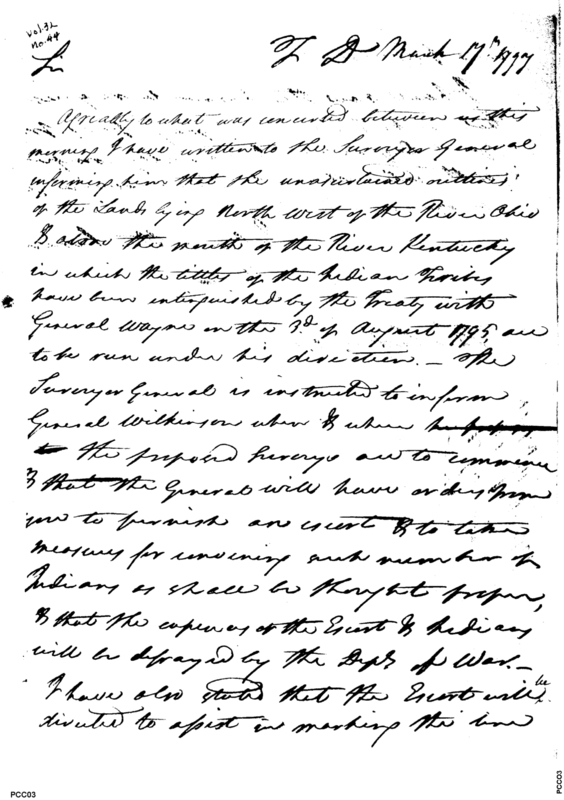 Vol. 32
No. 44
T D March 17th 1797
Sir
Agreeably to what was concerted between us this
morning I have written to the Surveyor General
informing him that the unascertained outlines
of the Lands lying North West of the River Ohio
& above the mouth of the River Kentucky
in which the titles of the Indian Tribes
have been extinguished by the Treaty with
General Wayne on the 3d of August 1795, are
to be run under his direction. — The
Surveyor General is instructed to inform
General Wilkinson when & where
the proposed Surveys are to commence
& that the General will have orders from
you to furnish an escort & to take
measures for convening such number of
Indians as shall be thought proper,
& that the expences of the Escort & Indians
will be defrayed by the Dept of War. —
I have also stated that the Escort will be
directed to assist in marking the line
PCC03
PCCO3